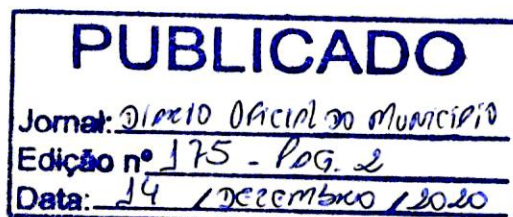 PUBLICADO
Jornal: DIÁRIO OFICIAL DO MUNICÍPIO
Edição nº 175 - PAG. 2
Data: 14 / DEZEMBRO / 2020